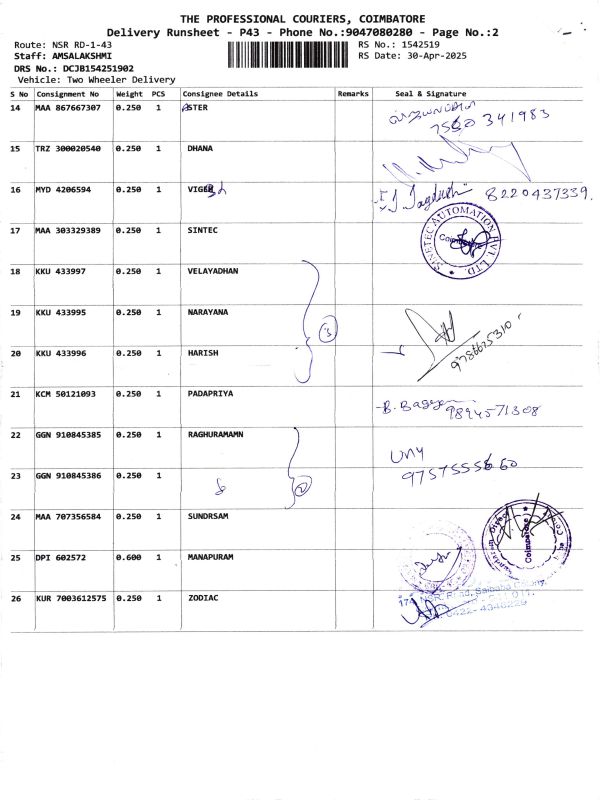 THE PROFESSIONAL COURIERS, COIMBATORE
Delivery Runsheet - P43 - Phone No.:9047080280 - Page No.:2
Route: NSR RD-1-43
RS No.: 1542519
Staff: AMSALAKSHMI
RS Date: 30-Apr-2025
DRS No.: DCJB154251902
Vehicle: Two Wheeler Delivery
S No Consignment No Weight PCS Consignee Details Remarks Seal & Signature
14 MAA 867667307 0.250 1 ASTER
341983
15 TRZ 300020540 0.250 1 DHANA
16 MYD 4206594 0.250 1 VIGER
J Jagdish 8220437339.
17 MAA 303329389 0.250 1 SINTEC
SINETEC AUTOMATION PVT. LTD.
Coimbatore
18 KKU 433997 0.250 1 VELAYADHAN
19 KKU 433995 0.250 1 NARAYANA
3
20 KKU 433996 0.250 1 HARISH
21 KCM 50121093 0.250 1 PADAPRIYA
9894571308
22 GGN 910845385 0.250 1 RAGHURAMAMN
23 GGN 910845386 0.250 1
2
24 MAA 707356584 0.250 1 SUNDRSAM
Coimbatore
25 DPI 602572 0.600 1 MANAPURAM
26 KUR 7003612575 0.250 1 ZODIAC
174, NSR Road, Saibaba Colony,